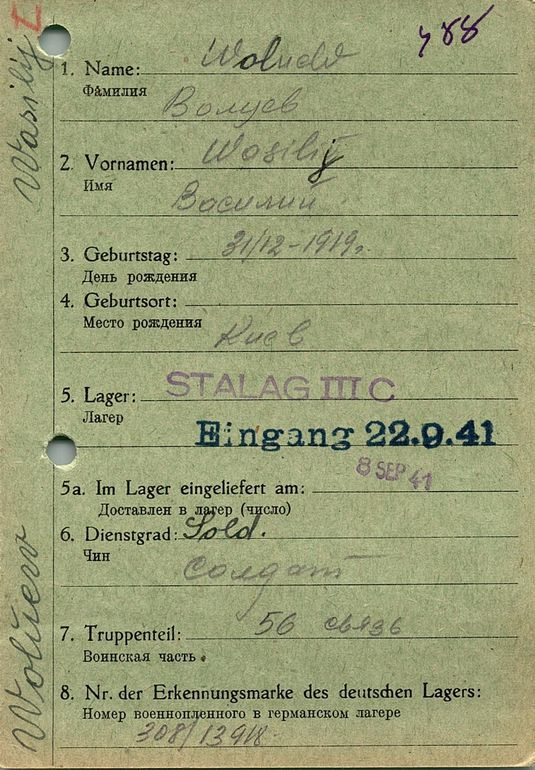 488
1. Name:
Фамилия
Волуев
2. Vornamen: Wasilij
Имя
Василий
3. Geburtstag: 31/12-1919г.
День рождения
4. Geburtsort:
Место рождения
Киев
5. Lager: STALAG III C
Лагер
Eingang 22.9.41
8 SEP 41
5a. Im Lager eingeliefert am:
Доставлен в лагер (число)
6. Dienstgrad: Sold.
Чин
Солдат
7. Truppenteil: 56 связь
Воинская часть
8. Nr. der Erkennungsmarke des deutschen Lagers:
Номер военнопленного в германском лагере
308/13918
Wasilij